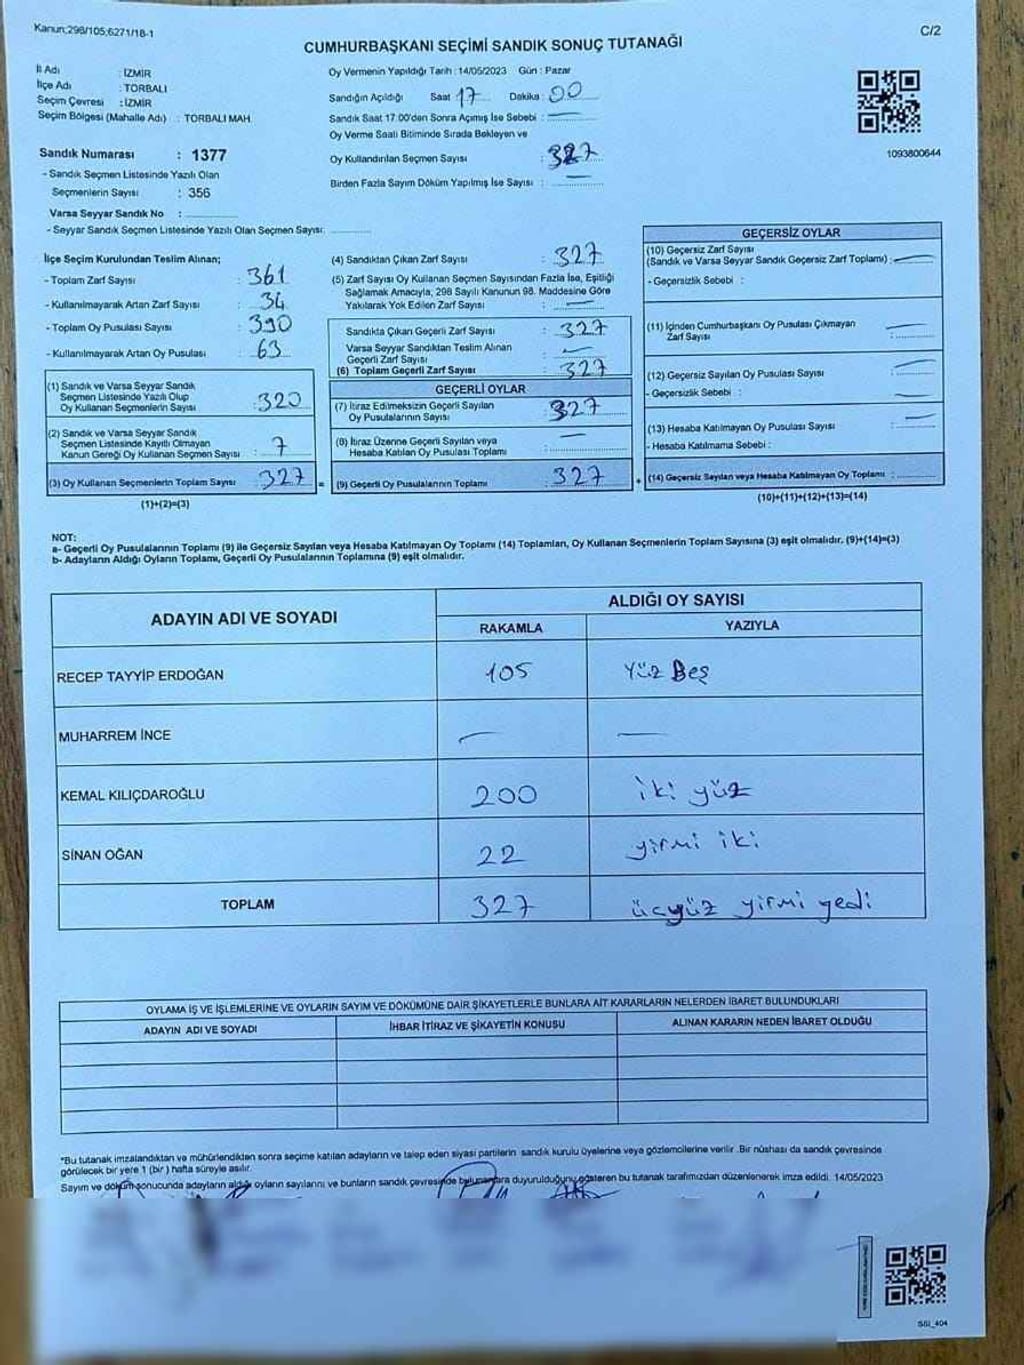 Kanun;298/105;6271/18-1
C/2
CUMHURBAŞKANI SEÇİMİ SANDIK SONUÇ TUTANAĞI
İl Adı : İZMİR
İlçe Adı : TORBALI
Seçim Çevresi : İZMİR
Seçim Bölgesi (Mahalle Adı) : TORBALI MAH.
Sandık Numarası : 1377
- Sandık Seçmen Listesinde Yazılı Olan
Seçmenlerin Sayısı : 356
Varsa Seyyar Sandık No :
- Seyyar Sandık Seçmen Listesinde Yazılı Olan Seçmen Sayısı:
Oy Vermenin Yapıldığı Tarih : 14/05/2023 Gün : Pazar
Sandığın Açıldığı Saat 17 Dakika : 00
Sandık Saat 17.00'den Sonra Açımış İse Sebebi : —
Oy Verme Saati Bitiminde Sırada Bekleyen ve
Oy Kullandırılan Seçmen Sayısı : 327
Birden Fazla Sayım Döküm Yapılmış İse Sayısı : —
1093800644
İlçe Seçim Kurulundan Teslim Alınan;
- Toplam Zarf Sayısı : 361
- Kullanılmayarak Artan Zarf Sayısı : 34
- Toplam Oy Pusulası Sayısı : 390
- Kullanılmayarak Artan Oy Pusulası : 63
(1) Sandık ve Varsa Seyyar Sandık
Seçmen Listesinde Yazılı Olup
Oy Kullanan Seçmenlerin Sayısı : 320
(2) Sandık ve Varsa Seyyar Sandık
Seçmen Listesinde Kayıtlı Olmayan
Kanun Gereği Oy Kullanan Seçmen Sayısı : 7
(3) Oy Kullanan Seçmenlerin Toplam Sayısı : 327 =
(1)+(2)=(3)
(4) Sandıktan Çıkan Zarf Sayısı : 327
(5) Zarf Sayısı Oy Kullanan Seçmen Sayısından Fazla İse, Eşitliği
Sağlamak Amacıyla; 298 Sayılı Kanunun 98. Maddesine Göre
Yakılarak Yok Edilen Zarf Sayısı : —
Sandıkta Çıkan Geçerli Zarf Sayısı : 327
Varsa Seyyar Sandıktan Teslim Alınan
Geçerli Zarf Sayısı : —
(6) Toplam Geçerli Zarf Sayısı : 327
GEÇERLİ OYLAR
(7) İtiraz Edilmeksizin Geçerli Sayılan
Oy Pusulalarının Sayısı 327
(8) İtiraz Üzerine Geçerli Sayılan veya
Hesaba Katılan Oy Pusulası Toplamı : —
(9) Geçerli Oy Pusulalarının Toplamı : 327 +
GEÇERSİZ OYLAR
(10) Geçersiz Zarf Sayısı
(Sandık ve Varsa Seyyar Sandık Geçersiz Zarf Toplamı) : —
- Geçersizlik Sebebi :
(11) İçinden Cumhurbaşkanı Oy Pusulası Çıkmayan
Zarf Sayısı —
(12) Geçersiz Sayılan Oy Pusulası Sayısı —
- Geçersizlik Sebebi : —
(13) Hesaba Katılmayan Oy Pusulası Sayısı —
- Hesaba Katılmama Sebebi :
(14) Geçersiz Sayılan veya Hesaba Katılmayan Oy Toplamı :
(10)+(11)+(12)+(13)=(14)
NOT:
a- Geçerli Oy Pusulalarının Toplamı (9) ile Geçersiz Sayılan veya Hesaba Katılmayan Oy Toplamı (14) Toplamları, Oy Kullanan Seçmenlerin Toplam Sayısına (3) eşit olmalıdır. (9)+(14)=(3)
b- Adayların Aldığı Oyların Toplamı, Geçerli Oy Pusulalarının Toplamına (9) eşit olmalıdır.
ADAYIN ADI VE SOYADI
ALDIĞI OY SAYISI
RAKAMLA YAZIYLA
RECEP TAYYİP ERDOĞAN 105 Yüz Beş
MUHARREM İNCE — —
KEMAL KILIÇDAROĞLU 200 iki yüz
SİNAN OĞAN 22 yirmi iki
TOPLAM 327 üçyüz yirmi yedi
OYLAMA İŞ VE İŞLEMLERİNE VE OYLARIN SAYIM VE DÖKÜMÜNE DAİR ŞİKAYETLERLE BUNLARA AİT KARARLARIN NELERDEN İBARET BULUNDUKLARI
ADAYIN ADI VE SOYADI İHBAR İTİRAZ VE ŞİKAYETİN KONUSU ALINAN KARARIN NEDEN İBARET OLDUĞU
*Bu tutanak imzalandıktan ve mühürlendikten sonra seçime katılan adayların ve talep eden siyasi partilerin sandık kurulu üyelerine veya gözlemcilerine verilir .Bir nüshası da sandık çevresinde
görülecek bir yere 1 (bir ) hafta süreyle asılır.
Sayım ve döküm sonucunda adayların aldığı oyların sayılarını ve bunların sandık çevresinde bulunanlara duyurulduğunu gösteren bu tutanak tarafımızdan düzenlenerek imza edildi. 14/05/2023
SSI_404